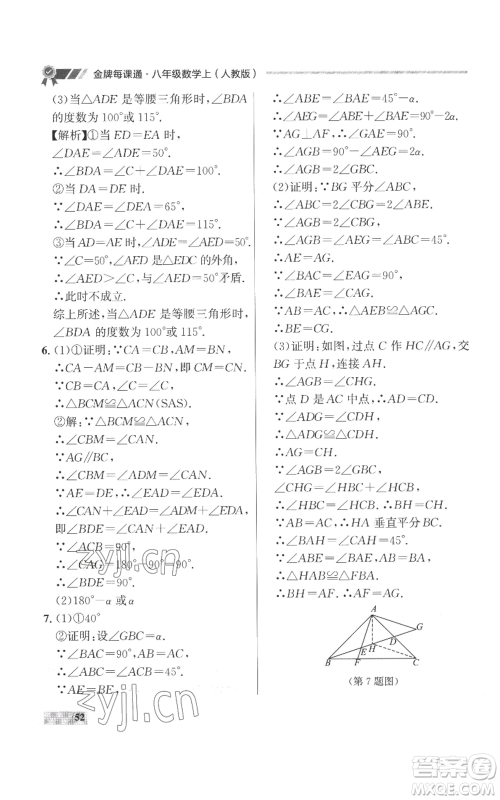 金牌每课通·八年级数学上(人教版)
(3)当△ADE是等腰三角形时,∠BDA
的度数为100°或115°.
【解析】①当ED=EA时,
∠DAE=∠ADE=50°.
∴∠BDA=∠C+∠DAE=100°.
②当DA=DE时,
∵∠DAE=∠DEA=65°,
∴∠BDA=∠C+∠DAE=115°.
③当AD=AE时,∠AED=∠ADE=50°.
∵∠C=50°,∠AED是△CDE的外角,
∴∠AED>∠C.与∠AED=50°矛盾.
∴此时不成立.
综上所述,当△ADE是等腰三角形时,
∠BDA的度数为100°或115°.
6.(1)①证明:∵CA=CB,AM=BN,
∴CA-AM=CB-BN,即CM=CN.
∵CB=CA,∠BCM=∠ACN,
∴△BCM≌△ACN(SAS).
②解:∵△BCM≌△ACN,
∴∠CBM=∠CAN.
∵AG∥BC,
∴∠CBM=∠G.
∵AE=DE,
∴∠EAD=∠ADE.
∴∠CAN+∠EAD=∠CBM+∠ADE,
即∠BDE=∠CAG.
∵∠ACB=90°,
∴∠CAG=180°-∠ACB=90°.
∴∠BDE=90°.
(2)180°-α或α
7.(1)①40°
②证明:设∠GBC=α.
∵∠BAC=90°,AB=AC,
∴∠ABC=45°.
∵BA=BE,
∴∠ABE=∠ABC-∠GBC=45°-α.
∴∠BAE=∠AEB=90°-∠ABE.
∴∠ABE=∠FAE=45°-α.
∵AG⊥AF,∴∠GAF=90°.
∴∠AGB=90°-2α.
∴∠AGB=2∠GAC.
(2)证明:∵BG平分∠ABC,
∴∠AGB=∠ABC=45°.
∴AE=AG.
∵∠BAC=∠EAG=90°,
∴∠BAE=∠CAG.
∵AB=AC,∴△AEB≌△AGC.
∴BE=CG.
(3)证明:如图,过点C作HC∥AG,交
BG于点H,连接AH.
∴∠GAD=∠HCD.
∵点D是AC中点,∠ADG=∠CDH,
∴△ADG≌△CDH.
∴AG=CH.
∵∠AGB=2∠GBC,
∠CHG=∠HBC+∠HCB,
∴∠HBC=∠HCB.
∴HB=HC=AG.
∵AB=AC,∴AH垂直平分BC.
∴∠BAH=45°.
∵∠ABE=∠FAE,AB=BA,
∴△AFB≌△BHA.
∴BH=AF.∴AF=AG.
A
G
E
D
H
B
F
C
(第7题图)
52
zyjl.cn
zyjl.cn